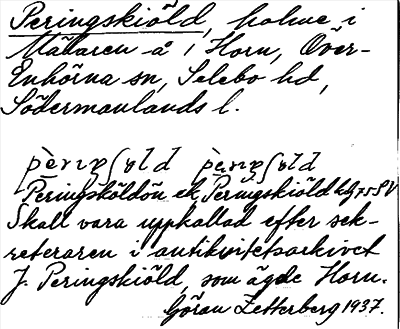 Peringskiöld, holme i
Mälaren å i Horn, Över-
Enhörna sn, Selebo hd,
Södermanlands l.
Peringsköldön ek. Peringskiöld
Skall vara uppkallad efter sek-
reteraren i antikvitetsarkivet
J. Peringskiöld, som ägde Horn.
Göran Zetterberg 1937.